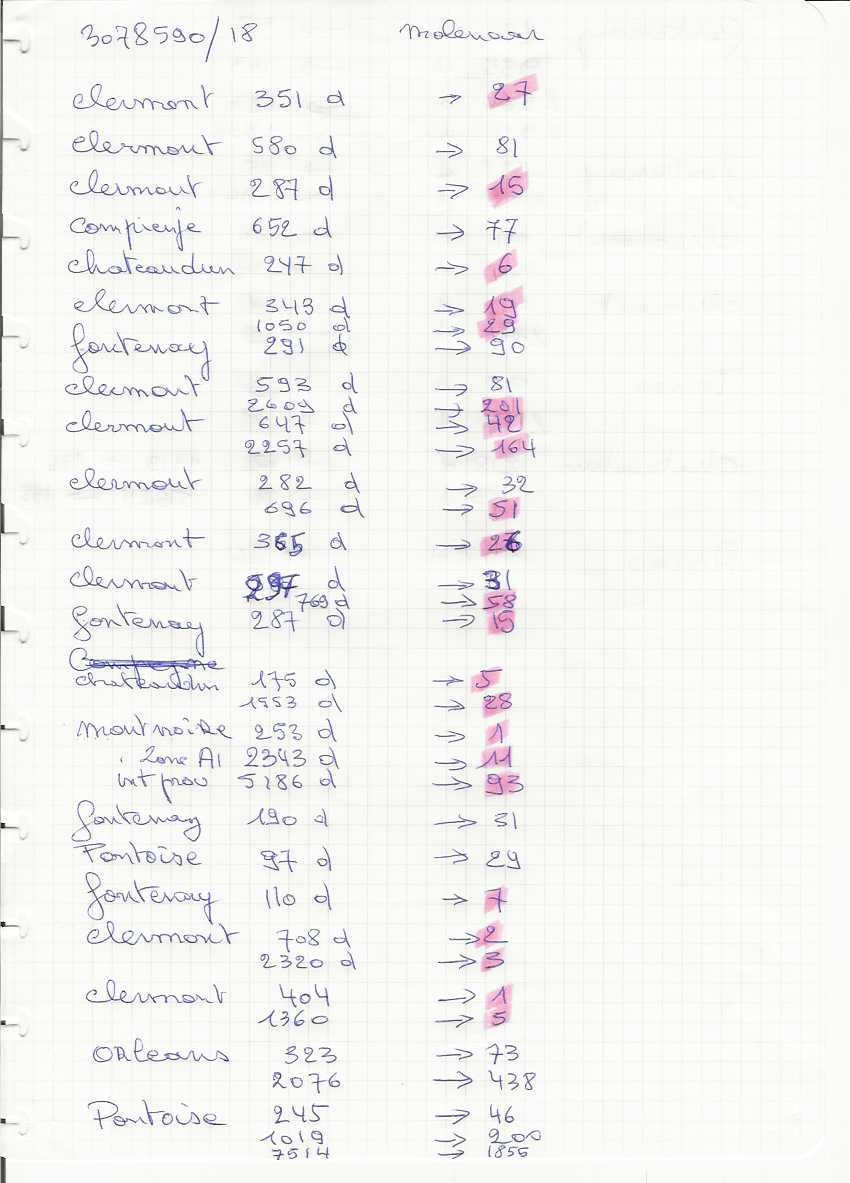 3078590/18 Molenaar
clermont 351 d → 27
Clermont 580 d → 81
clermont 287 d → 15
Compienje 652 d → 77
chateaudun 247 d → 6
clermont 343 d → 19
1050 d → 29
fontenay 291 d → 90
clermont 593 d → 81
2609 d → 201
clermont 647 d → 42
2257 d → 164
clermont 282 d → 32
696 d → 51
clermont 365 d → 26
clermont 297 d → 31
769 d → 58
fontenay 287 d → 15
Compegne
chateaudun 175 d → 5
1553 d → 28
Montnoire 253 d → 1
Zone A1 2343 d → 11
int prov 5186 d → 93
fontenay 190 d → 31
Pontoise 97 d → 29
fontenay 110 d → 7
clermont 708 d → 2
2320 d → 3
clermont 404 → 1
1360 → 5
ORleans 323 → 73
2076 → 438
Pontoise 245 → 46
1019 → 200
7514 → 1855